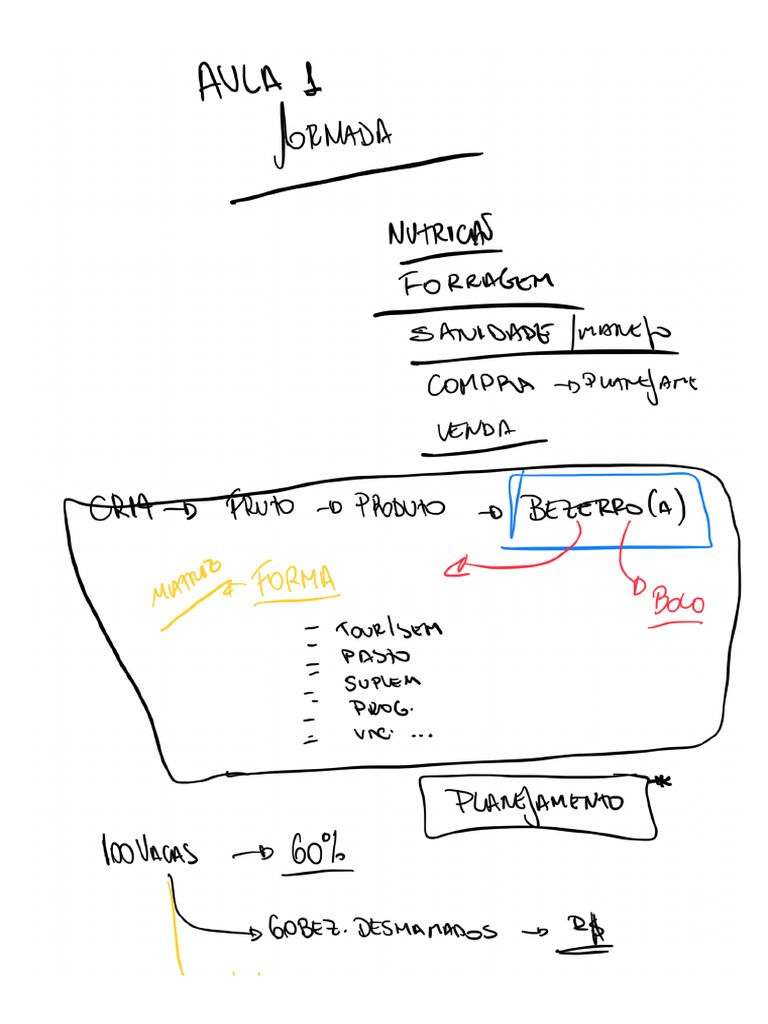 AULA 1
JORNADA
NUTRIÇÃO
FORRAGEM
SANIDADE / MANEJO
COMPRA → PLANEJAME
VENDA
CRIA → FRUTO → PRODUTO → BEZERRO(A)
MATRIZ ← FORMA
BOLO
- TOUR/SEM
- PASTO
- SUPLEM
- PROG.
- VAC. ...
PLANEJAMENTO *
100 VACAS → 60%
60 BEZ. DESMAMADOS → R$